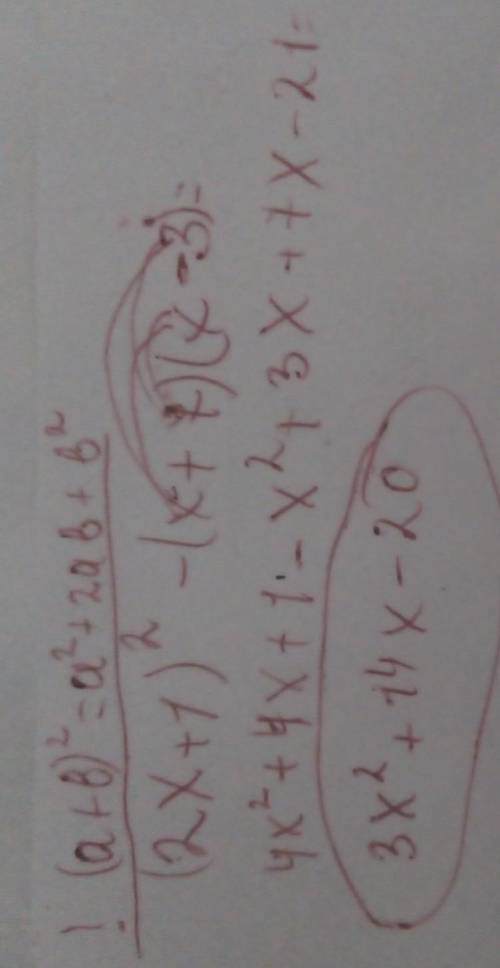 ! (a+b)² = a² + 2ab + b²
(2x+1)² - (x+7)(x-3) =
4x² + 4x + 1 - x² + 3x + 7x - 21 =
3x² + 14x - 20